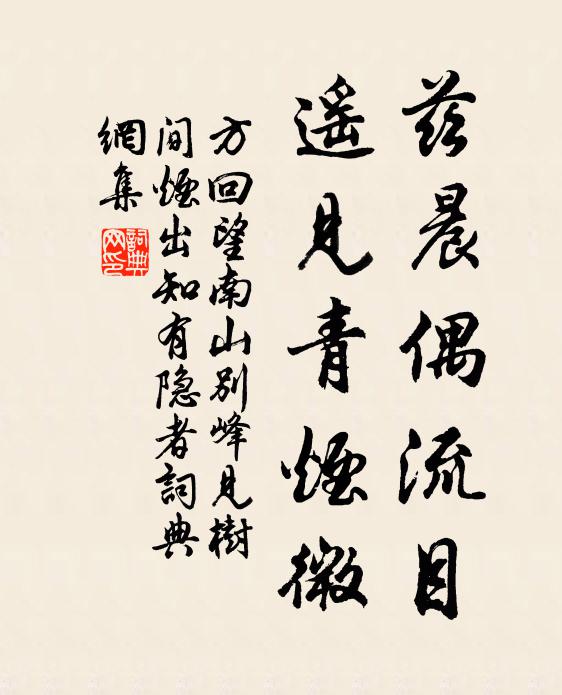 茲晨偶流目
遥見青煙微
方回望南山别峰見樹
间煙出知有隐者詞典
網集
詞典
网印